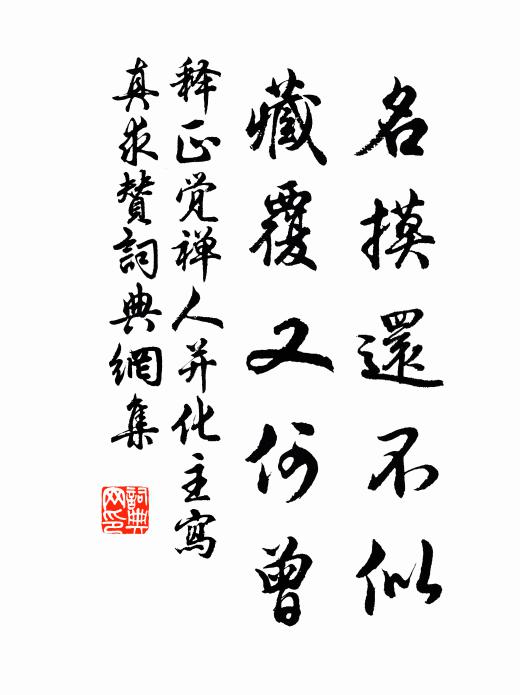 名摸還不似
藏覆又何曾
释正觉禅人并化主寫
真求贊詞典網集
詞典网印